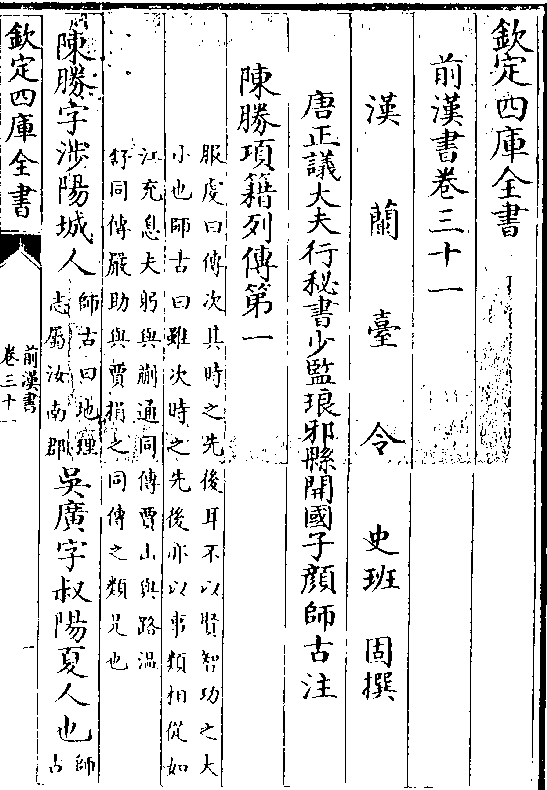 欽定四庫全書
前漢書卷三十一
漢蘭臺令史班固撰
唐正議大夫行秘書少監琅邪縣開國子顔師古注
陳勝項籍列傳第一
服虔曰傳次其時之先後耳不以賢智功之大
小也師古曰雖次時之先後亦以事類相從如
江充息夫躬與蒯通同傳賈山與路温
舒同傳嚴助與賈捐之同傳之類是也
陳勝字涉陽城人
師古曰地理
志屬汝南郡
吳廣字叔陽夏人也
師
古
欽定四庫全書
前漢書
卷三十一
一